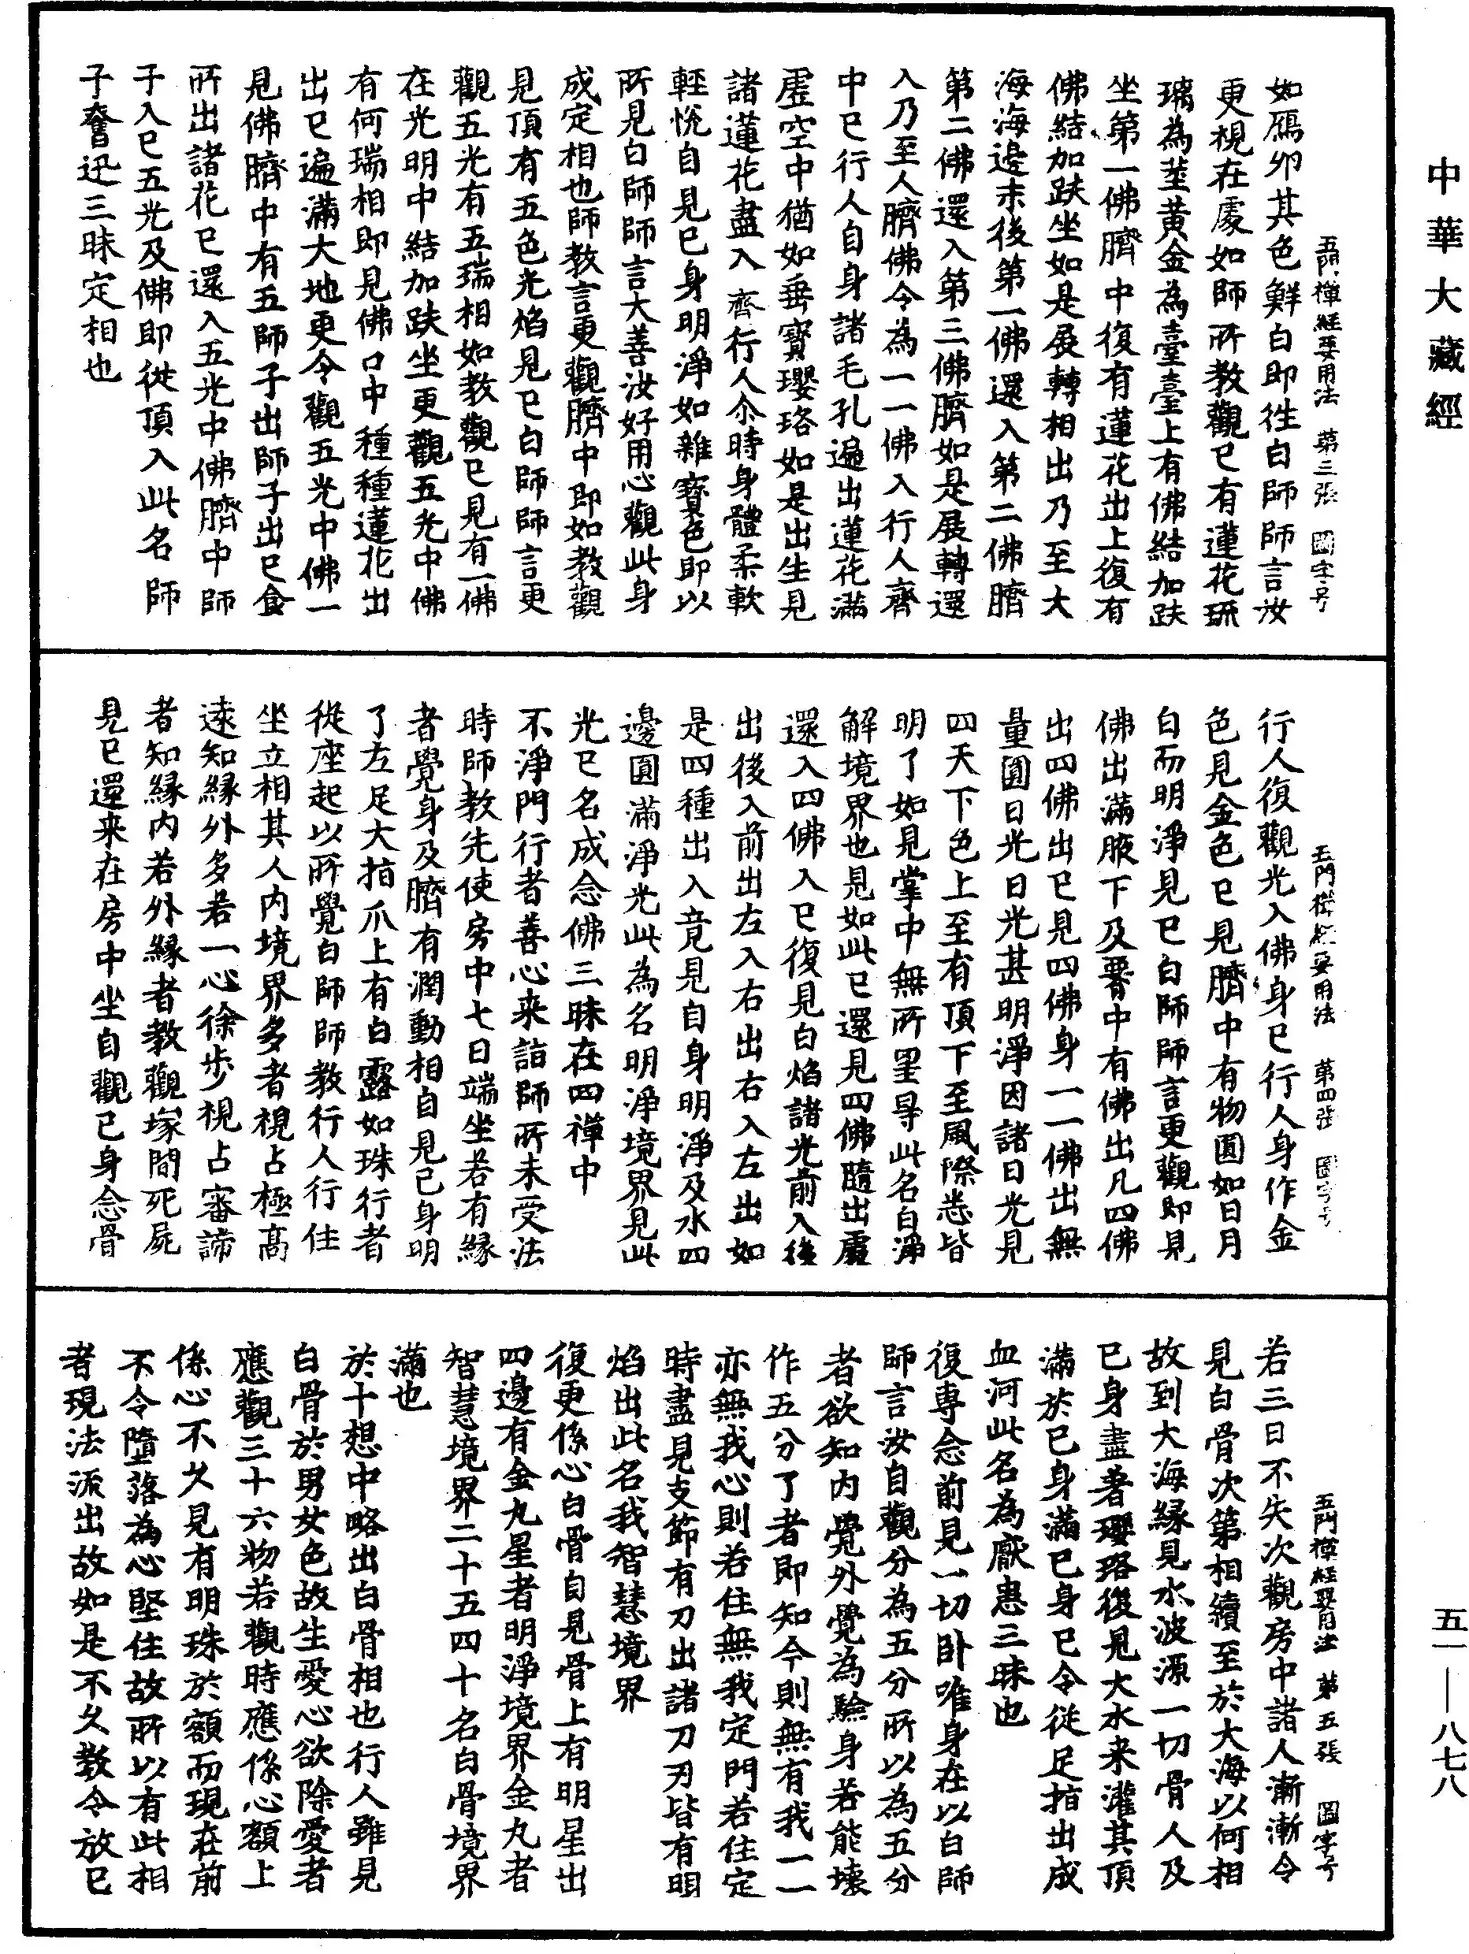 中華大藏經
五門禪經要用法　第三張　圖字号
如鴈卵其色鮮白即往白師師言汝
更視在處如師所教觀已有蓮花琉
璃為莖黃金為臺臺上有佛結加趺
坐第一佛臍中復有蓮花出上復有
佛結加趺坐如是展轉相出乃至大
海海邊末後第一佛還入第二佛臍
第二佛還入第三佛臍如是展轉還
入乃至人臍佛令為一一佛入行人齊
中已行人自身諸毛孔遍出蓮花滿
虛空中猶如垂寶瓔珞如是出生見
諸蓮花盡入齊行人尒時身體柔軟
輕悅自見已身明淨如雜寶色即以
所見白師師言大善汝好用心觀此身
成定相也師教言更觀臍中即如教觀
見頂有五色光焰見已白師師言更
觀五光有五瑞相如教觀已見有一佛
在光明中結加趺坐更觀五光中佛
有何瑞相即見佛口中種種蓮花出
出已遍滿大地更令觀五光中佛一
見佛臍中有五師子出師子出已食
所出諸花已還入五光中佛臍中師
子入已五光及佛即從頂入此名師
子奮迅三昧定相也
五門禪經要用法　第四張　圖字号
行人復觀光入佛身已行人身作金
色見金色已見臍中有物圓如日月
白而明淨見已白師師言更觀即見
佛出滿腋下及䏶中有佛出凡四佛
出四佛出已見四佛身一一佛出無
量圓日光日光甚明淨因諸日光見
四天下色上至有頂下至風際悉皆
明了如見掌中無所罣㝵此名白淨
解境界也見如此已還見四佛隨出處
還入四佛入已復見白焰諸光前入後
出後入前出左入右出右入左出如
是四種出入竟見自身明淨及水四
邊圓滿淨光此為名明淨境界見此
光已名成念佛三昧在四禪中
不淨門行者善心来詣師所未受法
時師教先使房中七日端坐若有緣
者覺身及臍有潤動相自見已身明
了左足大指爪上有白露如珠行者
從座起以所覺白師師教行人行住
坐立相其人內境界多者視占極高
遠知緣外多若一心徐步視占審諦
者知緣內若外緣者教觀塚間死屍
見已還来在房中坐自觀已身念骨
五門禪經要用法　第五張　圖字号
若三日不失次觀房中諸人漸漸令
見白骨次第相續至於大海以何相
故到大海緣見水波源一切骨人及
已身盡著瓔珞後見大水来灌其頂
滿於已身滿已身已令從足指出成
血河此名為厭患三昧也
復專念前見一切卧唯身在以白師
師言汝自觀分為五分所以為五分
者欲知內覺外覺為驗身若能壞
作五分了者即知令則無有我一一
亦無我心則若住無我定門若住定
時盡見支節有刀出諸刀刃皆有明
焰出此名我智慧境界
復更係心白骨自見骨上有明星出
四邊有金丸星者明淨境界金丸者
智慧境界二十五四十名白骨境界
滿也
於十想中略出白骨相也行人雖見
白骨於男女色故生愛心欲除愛者
應觀三十六物若觀時應係心額上
係心不久見有明珠於額而現在前
不令墮落為心堅住故所以有此相
者現法流出故如是不久教令放已
五一—八七八